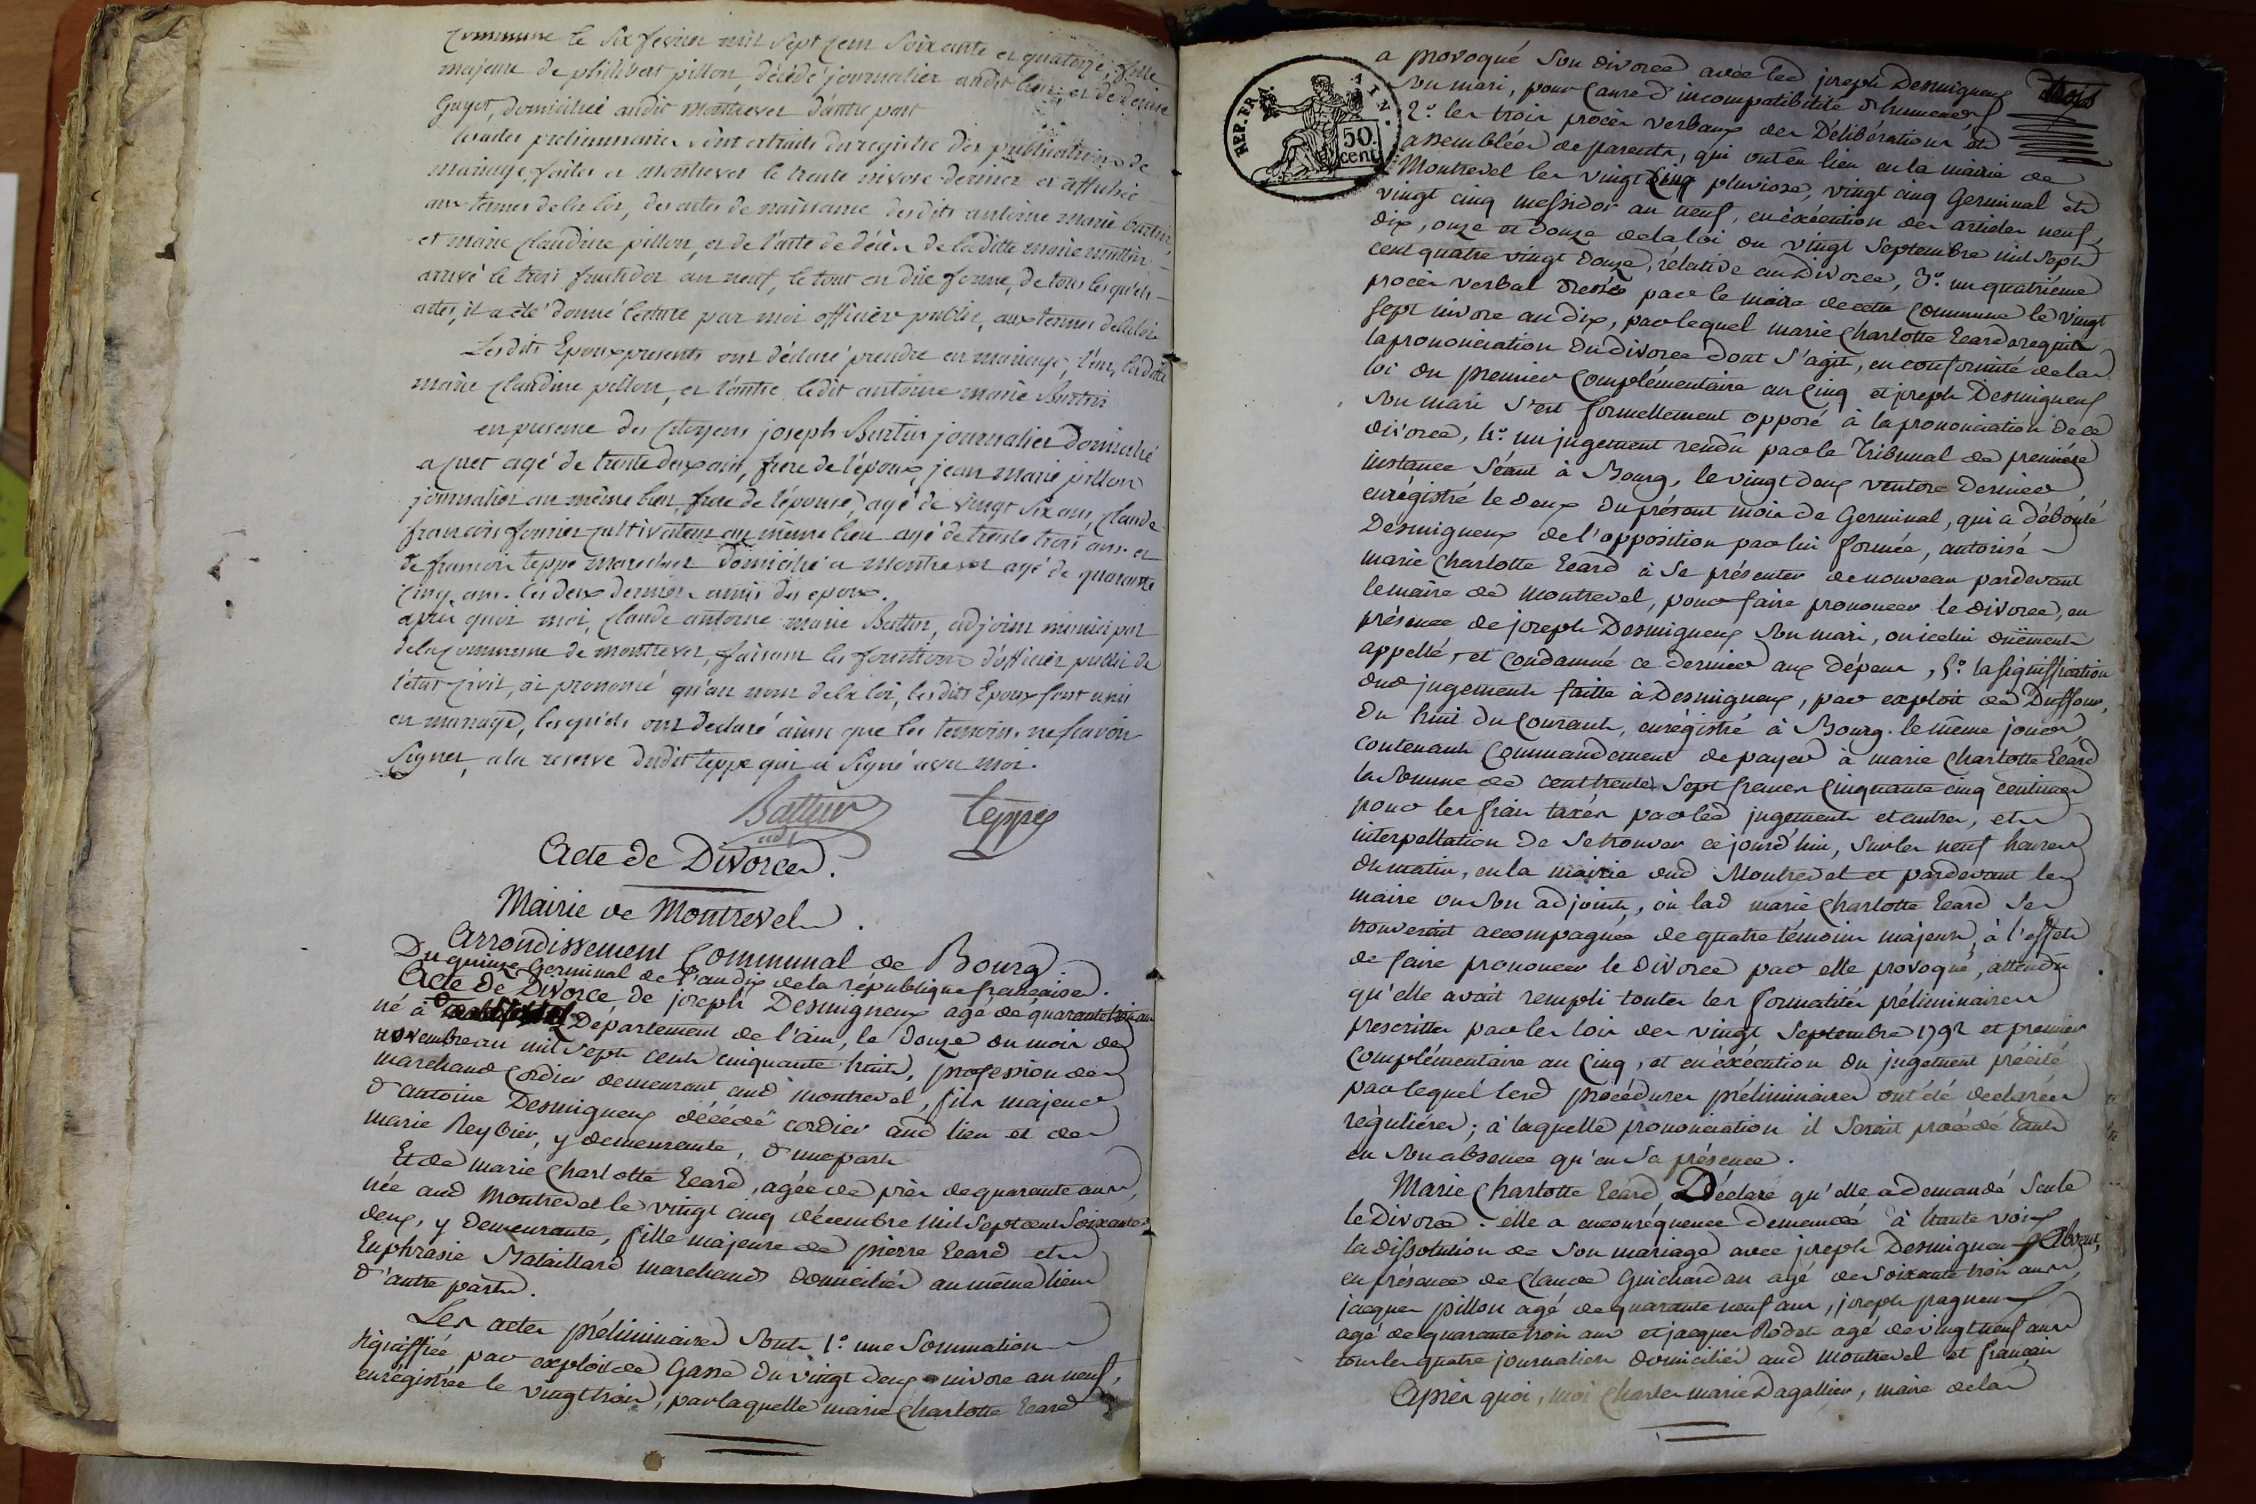 commune le six fevrier mil sept cent soixante et quatorze, fille
majeure de philibert pillon, décédé journalier audit lieu, et de denise
Guyet, domiciliée audit montrevel d'autre part
les actes preliminaires sont extraits du registre des publications de
mariage, faites a montrevel le trente nivose dernier et affichée
aux termes de la loi, des actes de naissance desdits antoine marie burtin
et marie claudine pillon, et de l'acte de décès de laditte marie
arrivé le trois fructidor an neuf, le tout en due forme, de tous lesquels
actes, il a été donné lecture par moi officier public, aux termes de la loi
Lesdits Epoux presents ont déclaré prendre en mariage, l'un, laditte
marie claudine pillon, et l'autre ledit antoine marie Burtin
en presence des citoyens joseph Burtin journalier domicilié
a agé de trente deux ans, frere de l'époux, jean marie pillon
journalier au même lieu, frere de l'épouse, agé de vingt six ans, claude
françois ferrier cultivateur au même lieu agé de trente trois ans et
de francois teppe marechal domicilié a montrevel agé de quarante
cinq ans. les deux derniers amis des epoux.
après quoi moi, claude antoine marie Buttin, adjoint municipal
de la commune de montrevel, faisant les fonctions d'officier public de
l'état civil, ai prononcé qu'au nom de la loi, lesdits Epoux sont unis
en mariage, lesquels ont declaré ainsi que les temoins ne savoir
signer, a la reserve dudit teppe qui a signé avec moi.
teppe
adj
Acte de Divorce.
Mairie de Montrevel.
Arrondissement Communal de Bourg.
Du quinze Germinal de l'an dix de la république française.
Acte de Divorce de joseph Desmigneux agé de quarante trois ans
né à Département de l'ain, le douze du mois de
novembre an mil sept cent cinquante huit, profession de
marchand cordier demeurant aud montrevel, fils majeur
d'antoine Desmigneux décédé cordier aud lieu et de
marie Reybier, y demeurante, d'une part
Et de marie Charlotte Ecard, agée de près de quarante ans,
née aud montrevel le vingt cinq décembre mil sept cent soixante
deux, y demeurante, fille majeure de pierre Ecard et
Euphrasie Bataillard marchands domiciliés au même lieu
d'autre part.
Les actes préliminaires sont 1° une sommation
signiffiée par exploit de Gasse du vingt deux nivose an neuf,
enrégistrée le vingt trois, par laquelle marie Charlotte Ecard
REP. FRA. AIN.
50.
cent
trois
a provoqué son divorce avec led joseph Desmigneux
son mari, pour cause d'incompatibilité d'humeur
2° les trois procès verbaux des Délibérations et
assemblées de parents, qui ont eu lieu en la mairie de
Montrevel les vingt cinq pluviose, vingt cinq Germinal et
vingt cinq messidor an neuf, en éxécution des articles neuf,
dix, onze et douze de la loi du vingt septembre mil sept
cent quatre vingt douze, rélative au Divorce, 3° un quatrième
procès verbal dressé par le maire de cette Commune le vingt
sept nivose an dix, par lequel marie Charlotte Ecard a requis
la prononciation du divorce dont s'agit, en conformité de la
loi du premier Complémentaire an cinq et joseph Desmigneux
son mari s'est formellement opposé à la prononciation de ce
divorce, 4° un jugement rendu par le Tribunal de première
instance séant à Bourg, le vingt deux ventose dernier,
enrégistré le deux du présent mois de Germinal, qui a débouté
Desmigneux de l'opposition par lui formée, autorisé
marie Charlotte Ecard à se présenter de nouveau pardevant
le maire de montrevel, pour faire prononcer le divorce, en
présence de joseph Desmigneux son mari, ou icelui duëment
appellé, et condamné ce dernier aux dépens, 5° la signiffication
dud jugement faitte à Desmigneux, par exploit de Duffour,
du huit du Courant, enrégistré à Bourg le même jour,
contenant Commandement de payer à marie Charlotte Ecard
la somme de cent trente sept francs cinquante cinq centimes
pour les frais taxés par led jugement et autres, et
interpellation de se trouver ce jourd'hui, sur les neuf heures
du matin, en la mairie dud Montrevel et pardevant le
maire ou son adjoint, où lad marie Charlotte Ecard se
trouverait accompagnée de quatre témoins majeurs, à l'effet
de faire prononcer le Divorce par elle provoqué, attendu
qu'elle avait rempli toutes les formalités préliminaires
prescrittes par les lois des vingt Septembre 1792 et premier
Complémentaire an cinq, et en éxécution du jugement précité
par lequel lesd procédures préliminaires ont été declarées
régulières; à laquelle prononciation il serait procédé tant
en son absence qu'en sa présence.
Marie Charlotte Ecard Déclare qu'elle a demandé seule
le Divorce. elle a enconséquence demandé à haute voix
la dissolution de son mariage avec joseph Desmigneux Absent,
en présence de Claude Guichardan agé de soixante trois ans,
jacques pillon agé de quarante neuf ans, joseph pagneux
agé de quarante trois ans et jacques Rodet agé de vingt neuf ans
tous les quatre journaliers domiciliés aud montrevel et français
Après quoi, moi Charles marie Dagallier, maire de la